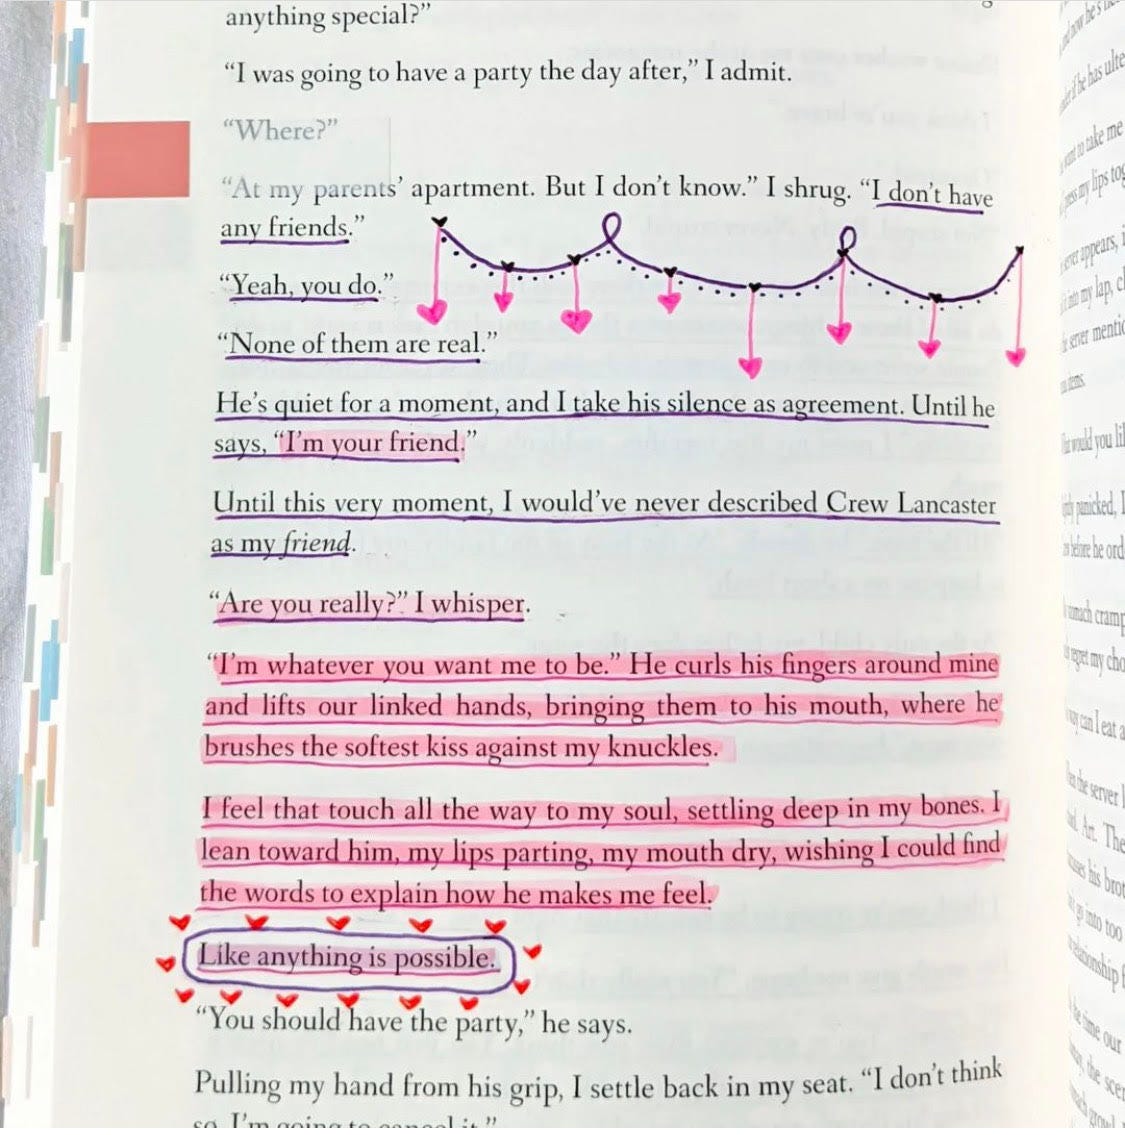 anything special?”
“I was going to have a party the day after,” I admit.
“Where?”
“At my parents’ apartment. But I don’t know.” I shrug. “I don’t have
any friends.”
“Yeah, you do.”
“None of them are real.”
He’s quiet for a moment, and I take his silence as agreement. Until he
says, “I’m your friend.”
Until this very moment, I would’ve never described Crew Lancaster
as my friend.
“Are you really?” I whisper.
“I’m whatever you want me to be.” He curls his fingers around mine
and lifts our linked hands, bringing them to his mouth, where he
brushes the softest kiss against my knuckles.
I feel that touch all the way to my soul, settling deep in my bones. I
lean toward him, my lips parting, my mouth dry, wishing I could find
the words to explain how he makes me feel.
Like anything is possible.
“You should have the party,” he says.
Pulling my hand from his grip, I settle back in my seat. “I don’t think
so. I’m going to cancel it.”
he has ulte
to take me
my lips tog
appears, i
my lap, cl
server mentio
items.
would you lik
panicked, I
before he ord
cramp
regret my cho
can I eat a
the server l
Art. The
his brot
go into too
relationship f
time our
the scen